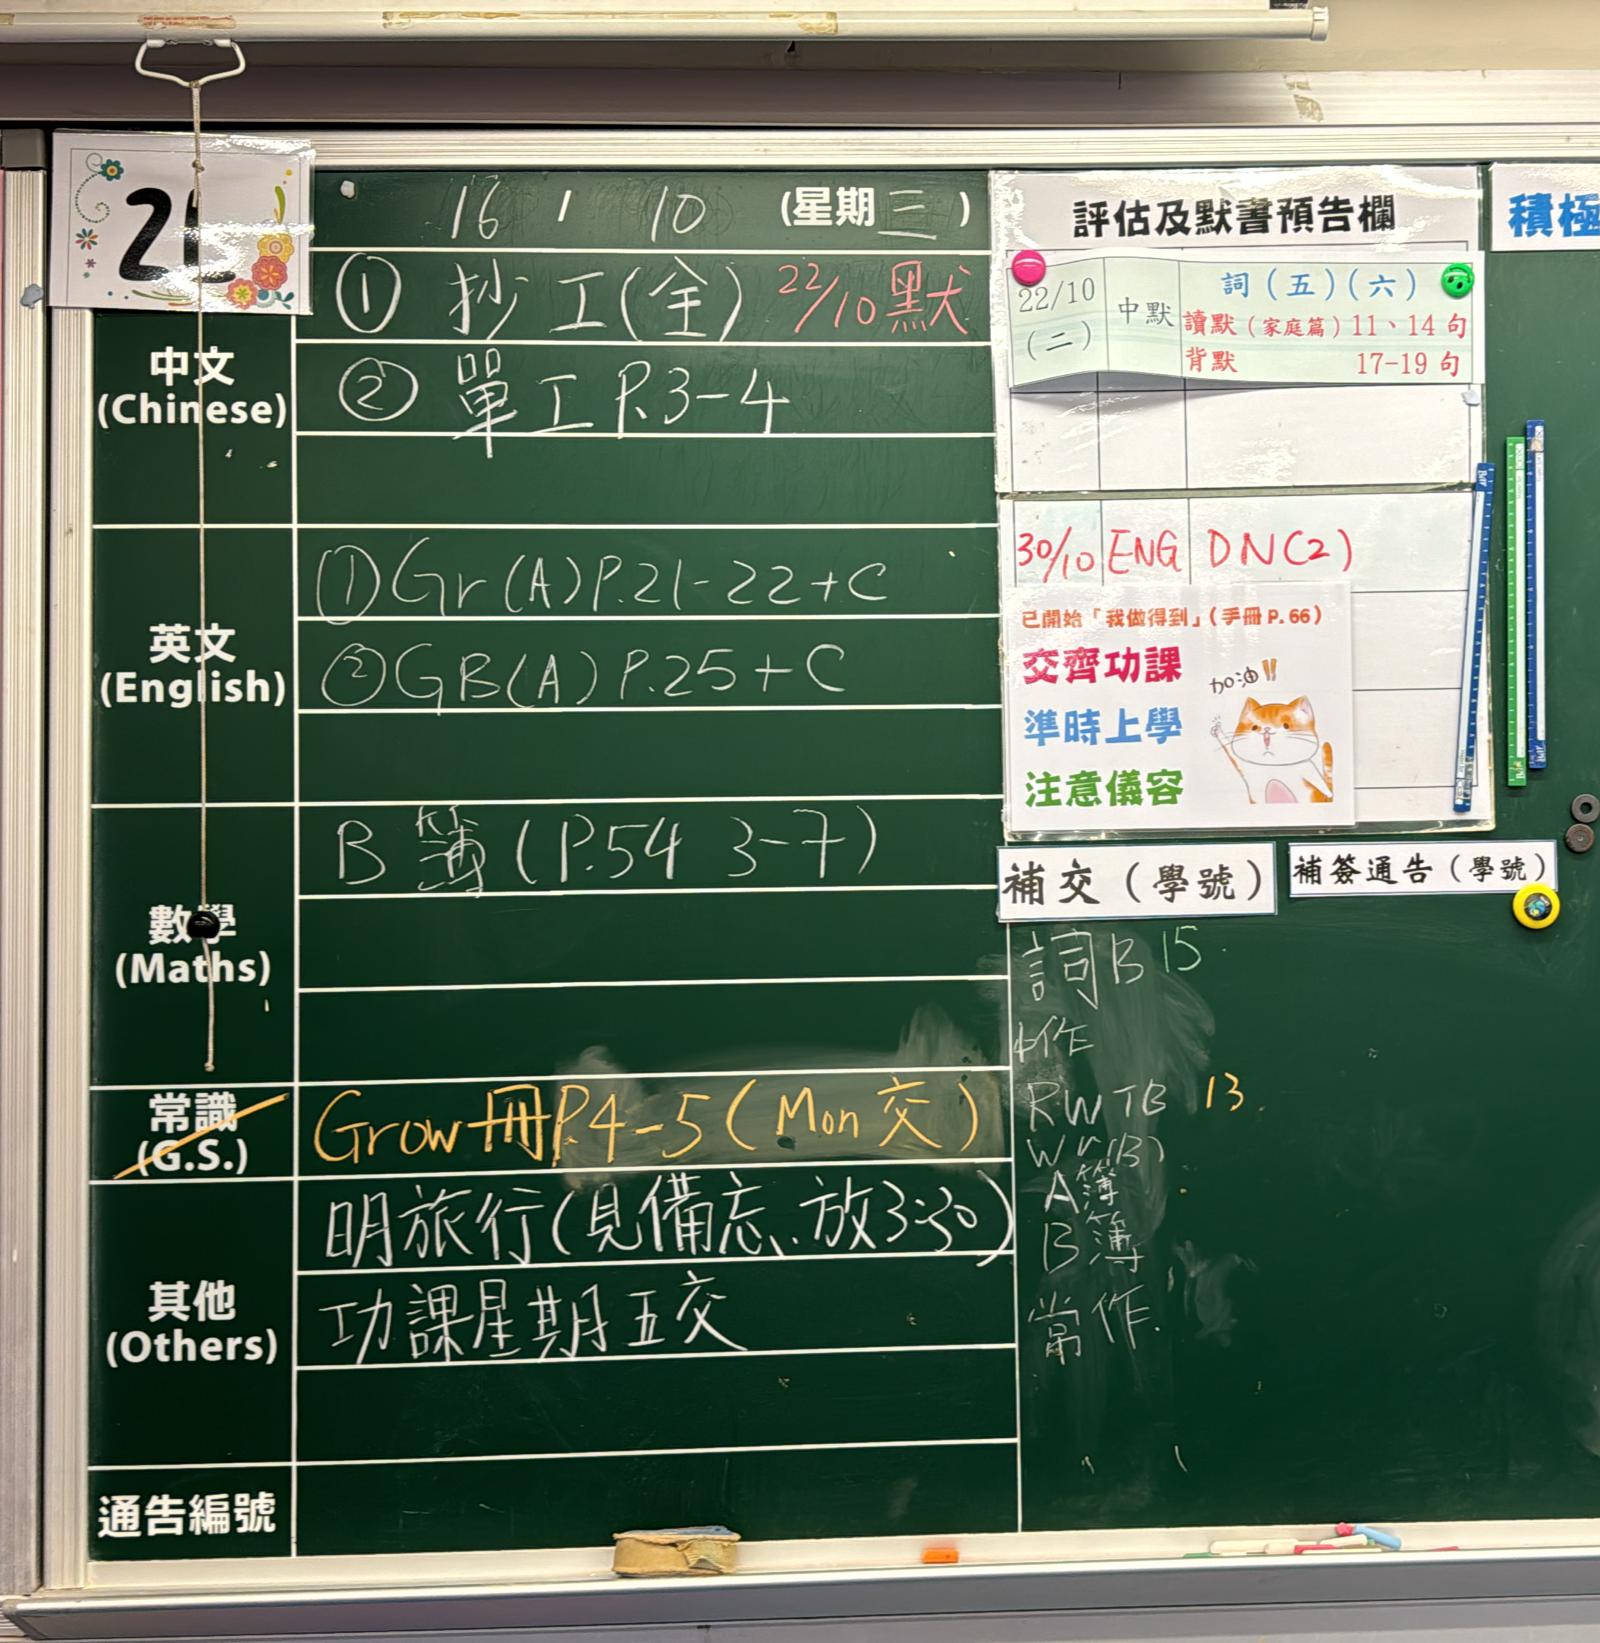 16 / 10 (星期三)
中文
(Chinese)
① 抄工(全) 22/10默
② 單工 P.3-4
英文
(English)
① Gr (A) P.21-22+C
② GB(A) P.25+C
數學
(Maths)
B簿 (P.54 3-7)
常識
(G.S.)
Grow冊P.4-5 (Mon 交)
其他
(Others)
明旅行(見備忘、放3:30)
功課星期五交
通告編號
評估及默書預告欄
22/10
(二)
中默
詞(五)(六)
讀默(家庭篇) 11、14 句
背默 17-19 句
30/10 ENG DN(2)
已開始「我做得到」(手冊 P. 66)
交齊功課
加油!!
準時上學
注意儀容
積極
補交(學號)
補簽通告(學號)
詞B 15
作
RWTB 13
A簿
B簿
常作